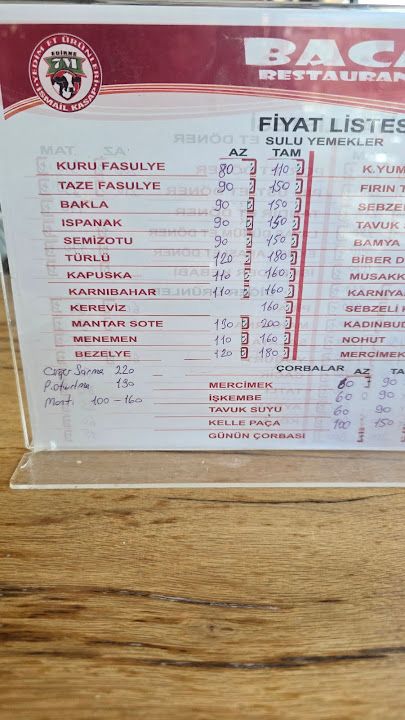 EDİRNE
7M
YEDİM ET ÜRÜNLERİ
İSMAİL KASAP
BACA
RESTAURAN
FİYAT LİSTES
SULU YEMEKLER
AZ TAM
KURU FASULYE 80 110 K.YUM
TAZE FASULYE 90 150 FIRIN T
BAKLA 90 150 SEBZEL
ISPANAK 90 150 TAVUK
SEMİZOTU 90 150 BAMYA
TÜRLÜ 120 180 BİBER D
KAPUSKA 110 160 MUSAKK
KARNIBAHAR 110 160 KARNIYA
KEREVİZ 160 SEBZELİ
MANTAR SOTE 130 200 KADINBUD
MENEMEN 110 160 NOHUT
BEZELYE 120 180 MERCİMEK
ÇORBALAR AZ TA
Ciğer Sarma 220
P.oturtma 130
Mantı 100 - 160
MERCİMEK 60 90
İŞKEMBE 60 90
TAVUK SUYU 60 90
KELLE PAÇA 100 150
GÜNÜN ÇORBASI